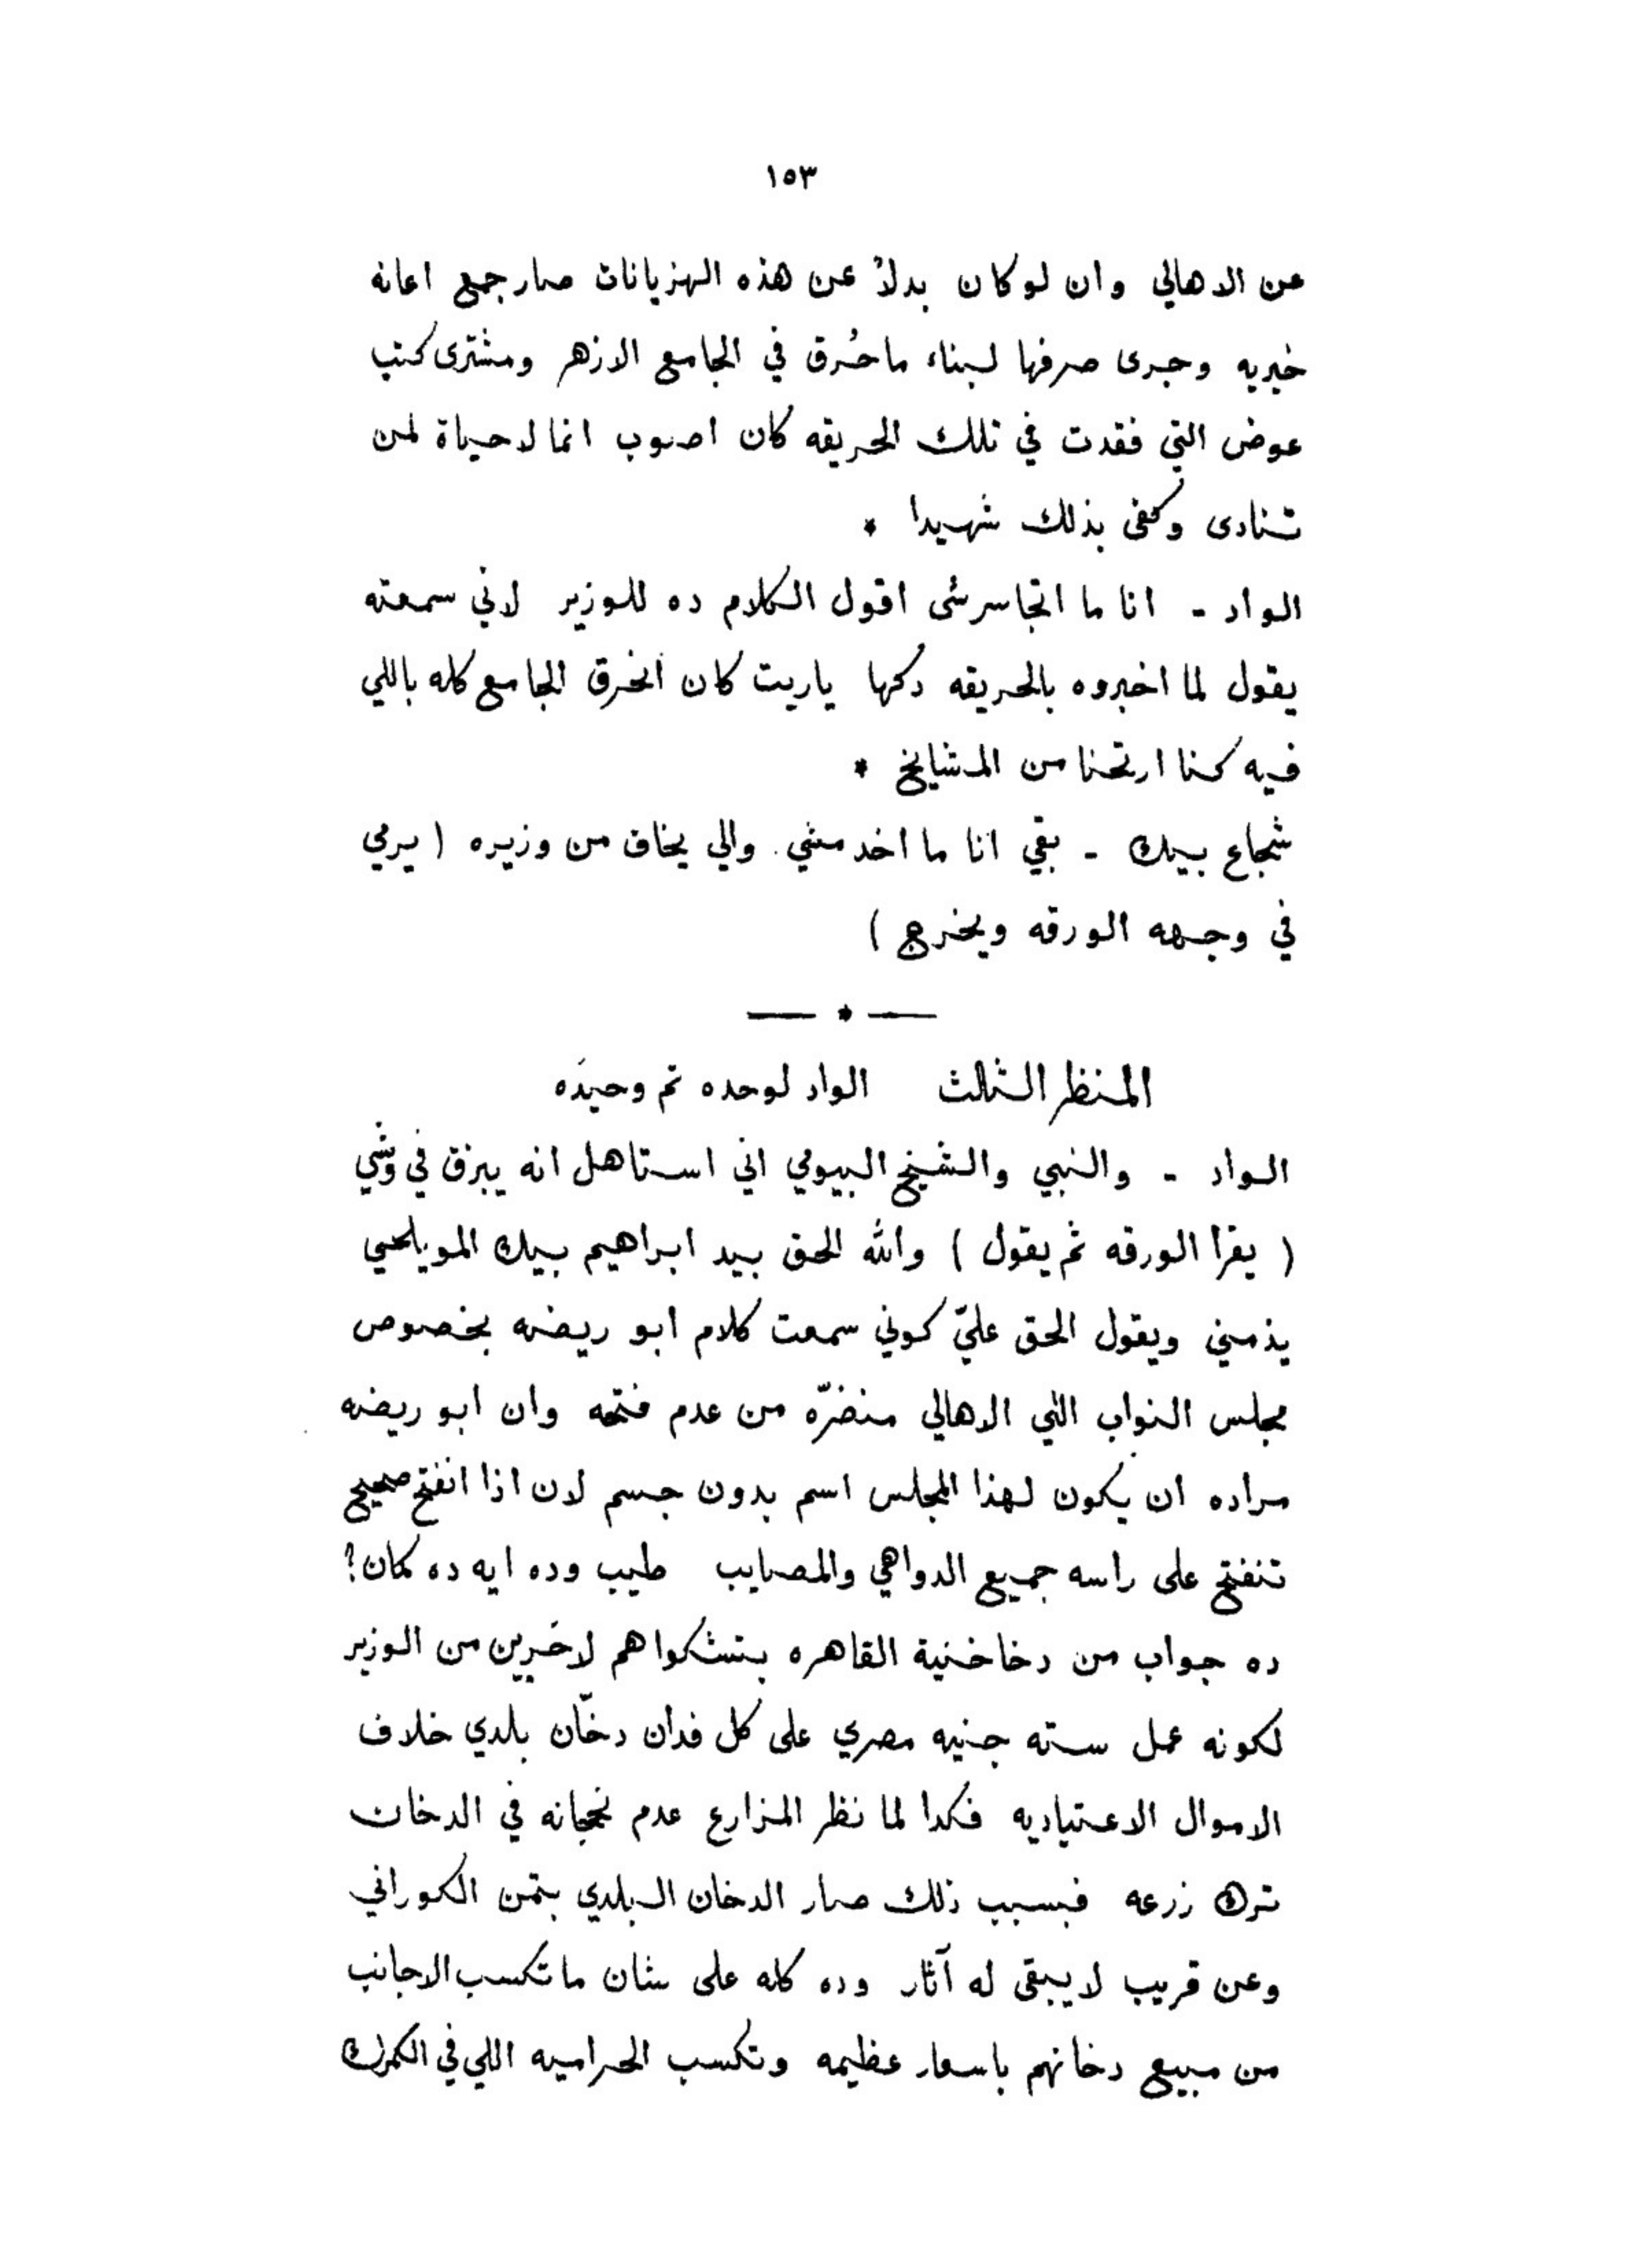 ١٥٣
عن الاهالي وان لو كان بدلاً عن هذه الهزيانات صار جمع اعانه
خيريه وجرى صرفها لبناء ما حُرق في الجامع الازهر ومشترى كتب
عوض التي فقدت في تلك الحريقه كان اصوب انما لا حياة لمن
تنادى وكفى بذلك شهيدا *
الواد - انا ما اتجاسرشى اقول الكلام ده للوزير لاني سمعته
يقول لما اخبروه بالحريقه دكها ياريت كان انحرق الجامع كله باللي
فيه كنا ارتحنا من المشايخ *
شجاع بيك - بقي انا ما اخدمشي والي يخاف من وزيره ( يرمي
في وجهه الورقه ويخرج )
— * —
المنظر الثالث الواد لوحده تم وحيدَه
الواد - والنبي والشيخ البيومي اني استاهل انه يبزق في وشّي
( يقرا الورقه ثم يقول ) والله الحق بيد ابراهيم بيك المويلحي
يذمني ويقول الحق عليّ كوني سمعت كلام ابو ريضه بخصوص
مجلس النواب التي الاهالي منضرّه من عدم فتحه وان ابو ريضه
مراده ان يكون لهذا المجلس اسم بدون جسم لان اذا انفتح صحيح
تنفتح على راسه جميع الدواهي والمصايب طيب وده ايه ده كمان؟
ده جواب من دخاخنية القاهره بتشكواهم لاخرين من الوزير
لكونه عمل سته جنيه مصري على كل فدان دخّان بلدي خلاف
الاموال الاعتياديه فكدا لما نظر المزارع عدم نجحانه في الدخان
ترك زرعه فبسبب ذلك صار الدخان البلدي بتمن الكوراني
وعن قريب لا يبقى له آثار وده كله على شان ما تكسب الاجانب
من مبيع دخانهم باسعار عظيمه وتكسب الحراميه اللي في الكمرك